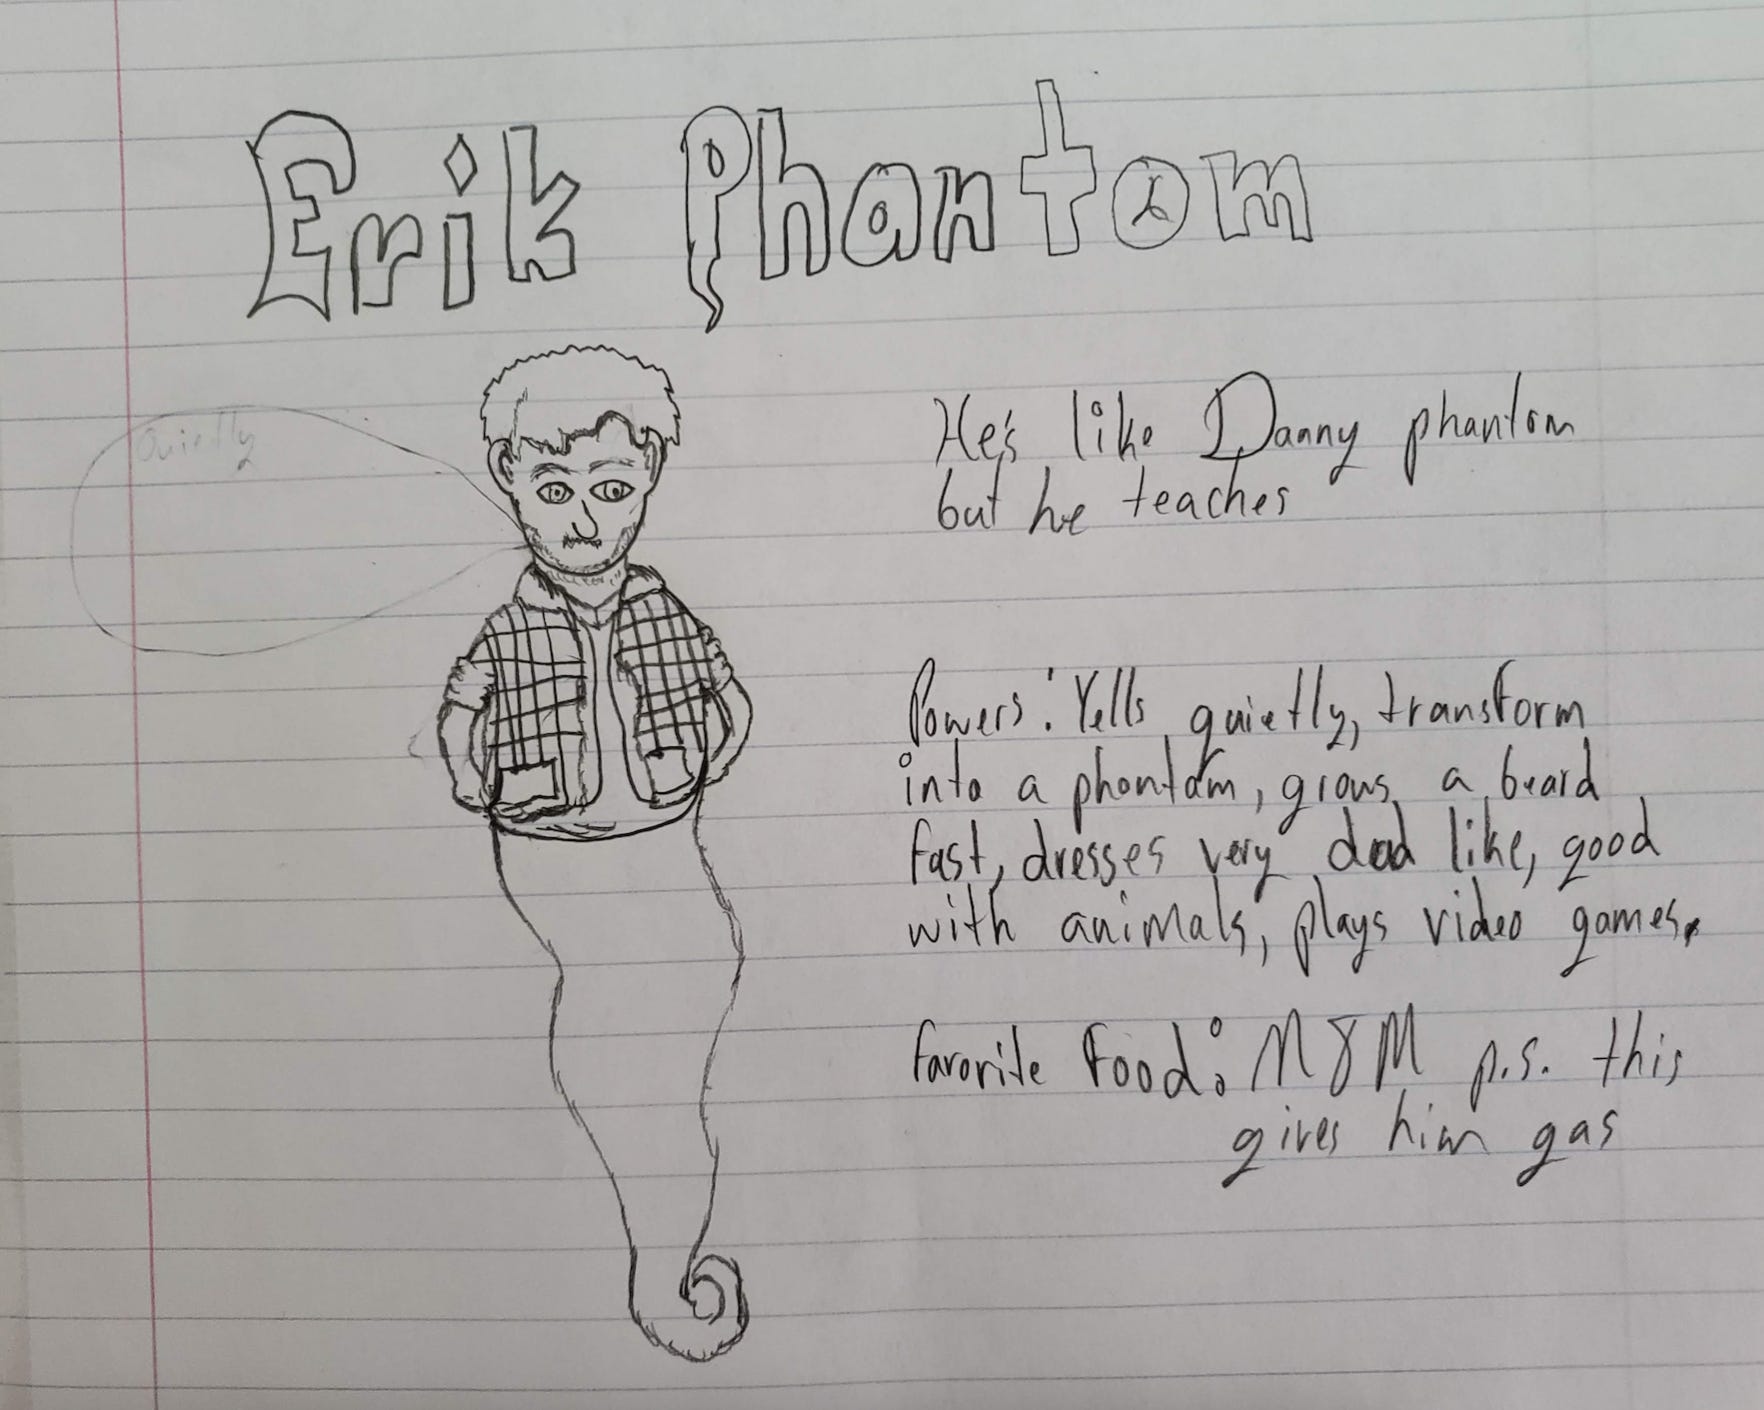 Erik Phantom
Quietly
He's like Danny phantom
but he teaches
Powers: Yells quietly, transform
into a phantom, grows a beard
fast, dresses very dad like, good
with animals, plays video games.
Favorite Food: M&M p.s. this
gives him gas